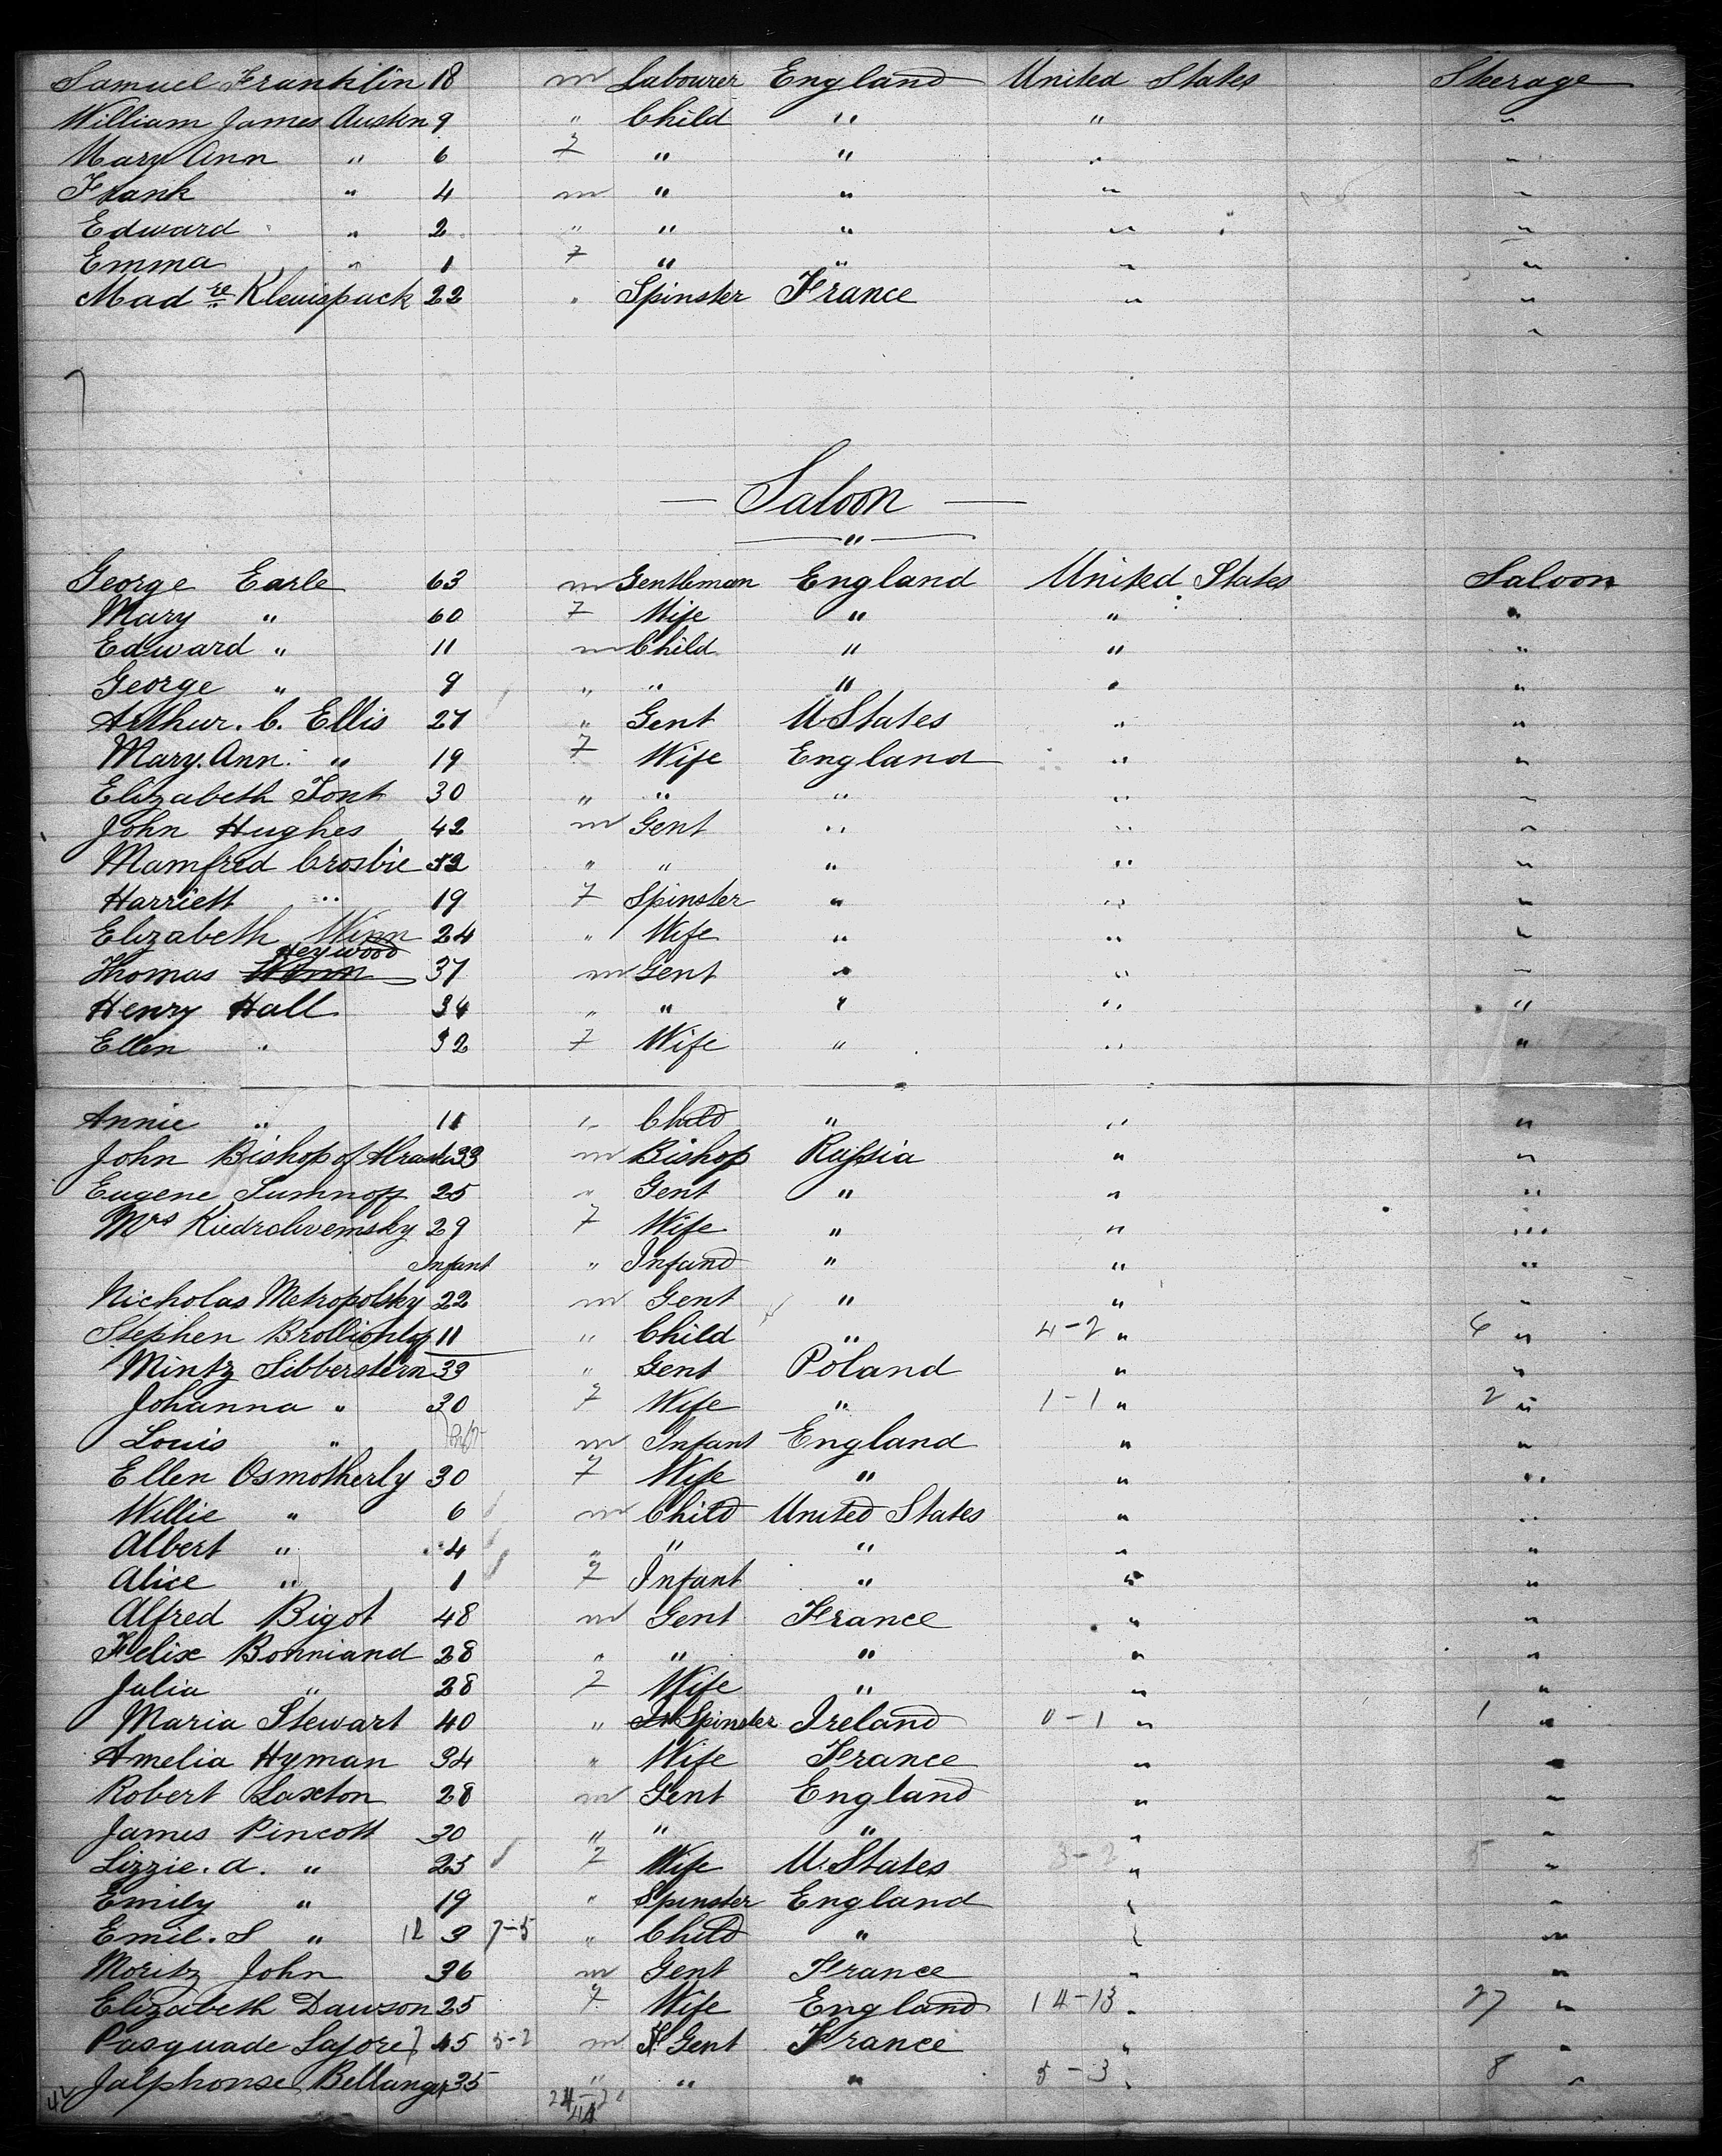 Samuel Franklin 18 m Labourer England United States Steerage
William James Austin 9 " Child " " "
Mary Ann " 6 F " " " "
Frank " 4 m " " " "
Edward " 2 " " " " "
Emma " 1 F " " " "
Mad re 22 " Spinster France " "
"
— Saloon —
"
George Earle 63 m Gentleman England United States Saloon
Mary " 60 F Wife " " "
Edward " 11 m Child " " "
George " 9 " " " " "
Arthur. C. Ellis 27 " Gent U States " "
Mary. Ann. " 19 F Wife England " "
Elizabeth Font 30 " " " " "
John Hughes 42 m Gent " " "
Mamfred Crosbie 52 " " " " "
Harriett " 19 F Spinster " " "
Elizabeth Winn 24 " Wife " " "
Heywood
Thomas Winn 37 m Gent " " "
Henry Hall 34 " " " " "
Ellen " 32 F Wife " " "
Annie " 11 " Child " " "
John Bishop of 33 m Bishop Russia " "
Eugene Sumnoff 25 " Gent " " "
Mrs 29 F Wife " " "
Infant " Infand " " "
Nicholas Metropolsky 22 m Gent " " "
Stephen 11 " Child " 4-2 " 6 "
Mintz Sibberstern 33 " Gent Poland " "
Johanna " 30 F Wife " 1-1 " 2 "
Louis " m Infant England " "
Ellen Osmotherly 30 F Wife " " "
Willie " 6 m Child United States " "
Albert " 4 " " " " "
Alice " 1 F Infant " " "
Alfred Bigot 48 m Gent France " "
Felix Bonniand 28 " " " " "
Julia " 28 F Wife " " "
Maria Stewart 40 " Spinster Ireland 0-1 " 1 "
Amelia Hyman 34 " Wife France " "
Robert Laxton 28 m Gent England " "
James Pincott 30 " " " " "
Lizzie. A. " 23 F Wife U. States 3-2 " 5 "
Emily " 19 " Spinster England " "
Emil. S " 12 3 7-5 " Child " " "
Moritz John 36 m Gent France " "
Elizabeth Dawson 25 F Wife England 14-13 " 27 "
Pasquade 45 5-2 m Gent France " "
Jalphonse Bellanger 35 " " " 5-3 " 8 "